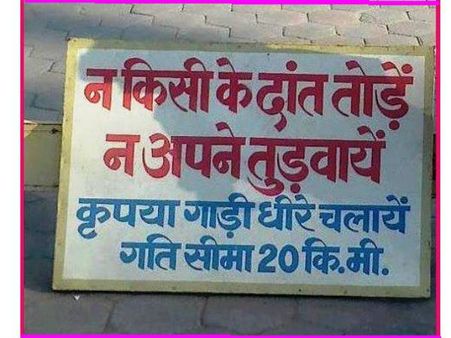 न किसी के दांत तोड़ें
न अपने तुड़वायें
कृपया गाड़ी धीरे चलायें
गति सीमा 20 कि.मी.